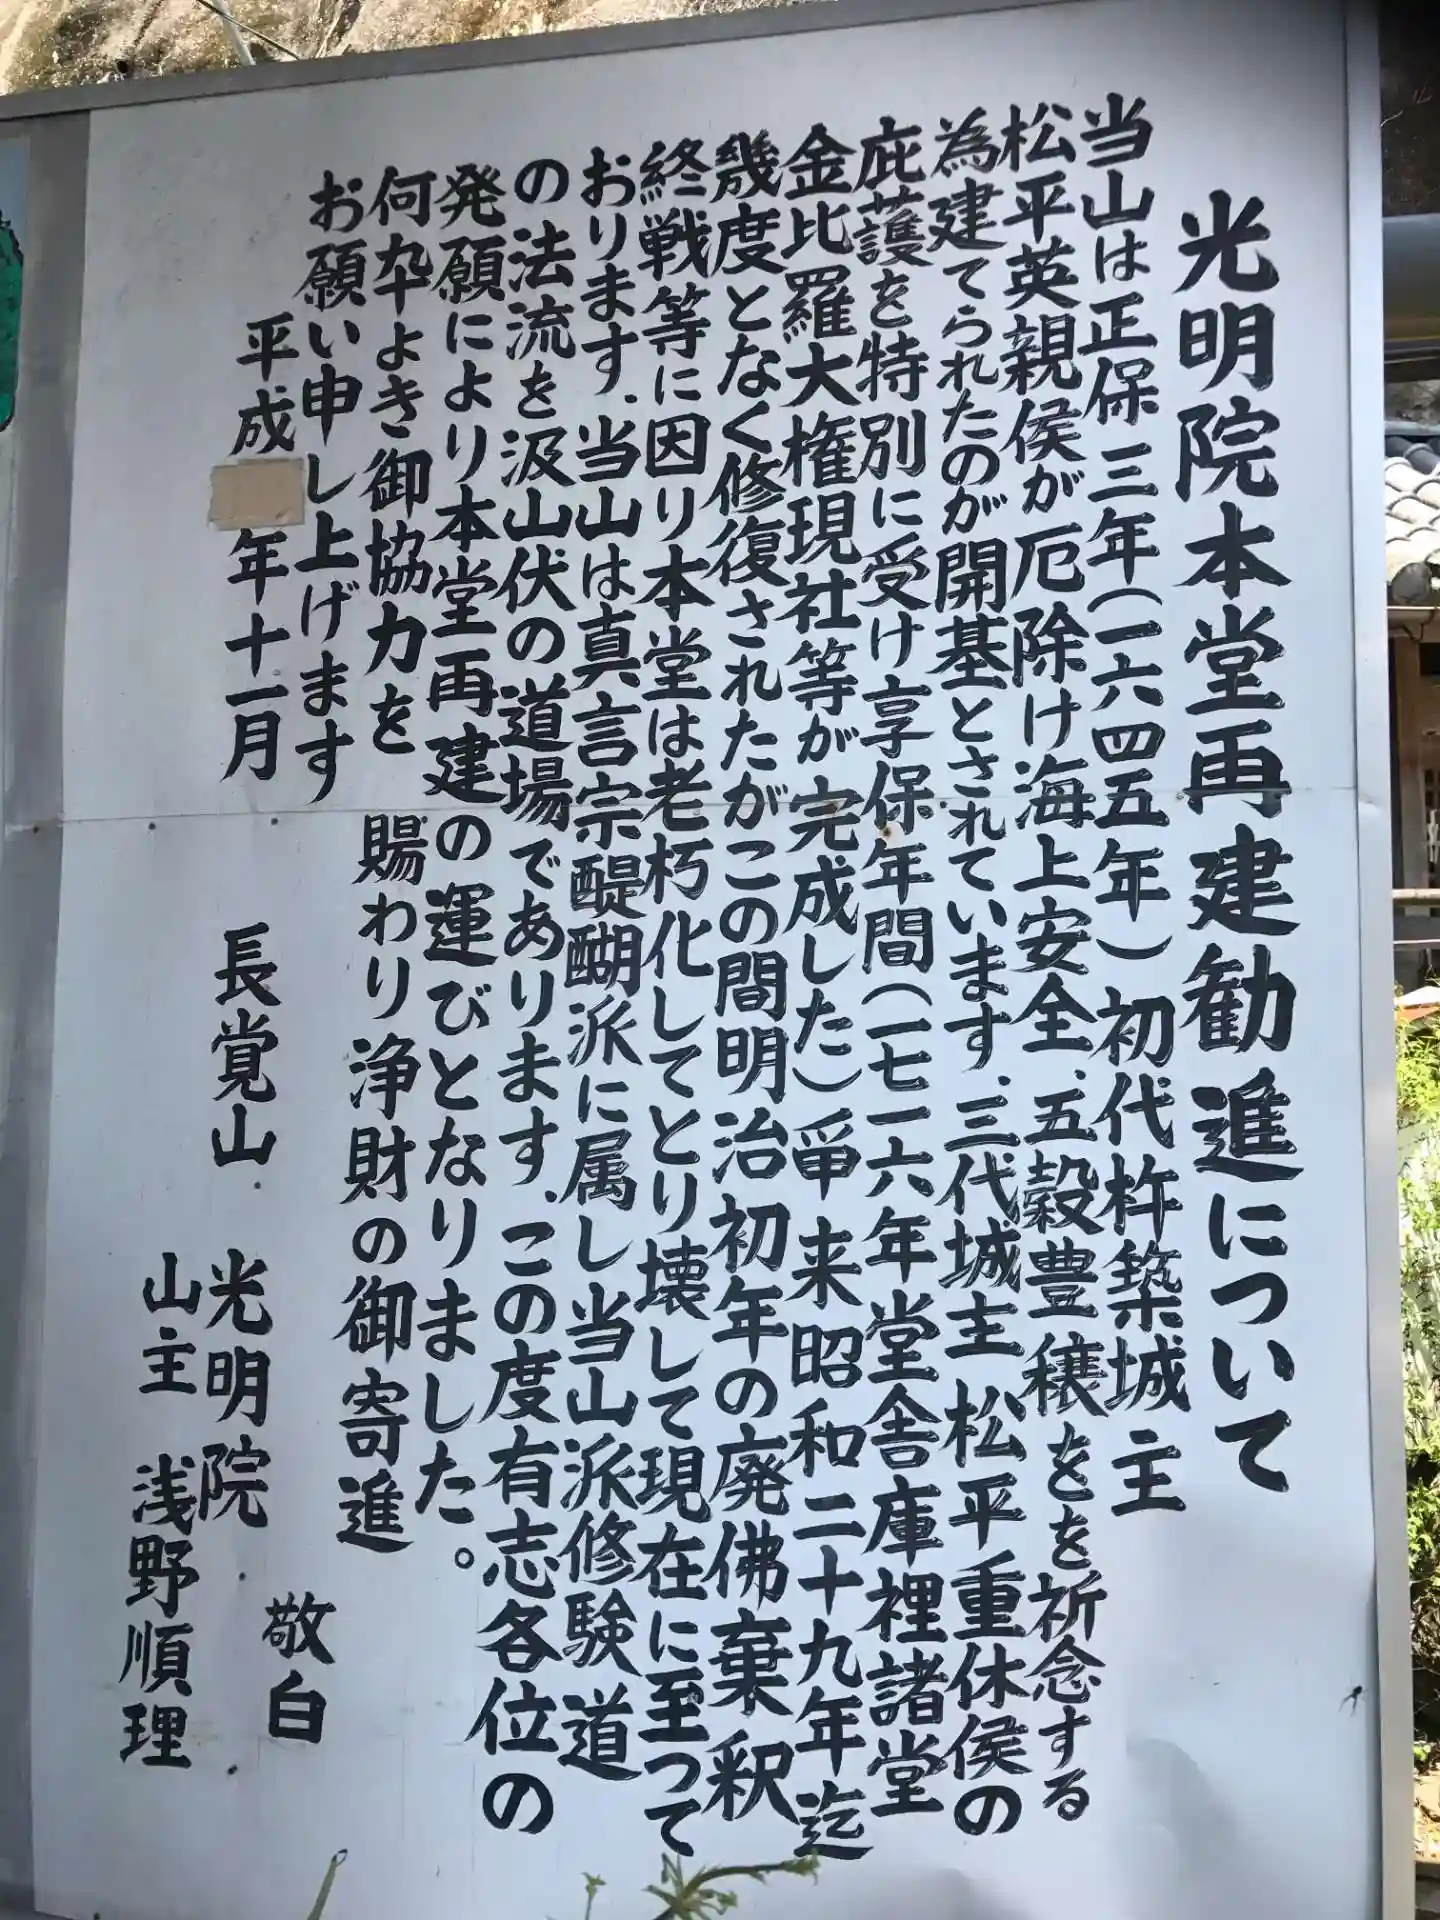 光明院本堂再建勧進について
当山は正保三年(一六四五年)初代杵築城主
松平英親侯が厄除け海上安全、五穀豊穣をを祈念する
為建てられたのが開基とされています、三代城主松平重休侯の
庇護を特別に受け享保年間(一七一六年堂舎庫裡諸堂
金比羅大権現社等が完成した)爾来昭和二十九年迄
幾度となく修復されたがこの間明治初年の廃佛棄釈
終戦等に因り本堂は老朽化してとり壊して現在に至って
おります、当山は真言宗醍醐派に属し当山派修験道
の法流を汲山伏の道場であります、この度有志各位の
発願により本堂再建の運びとなりました。
何卆よき御協力を 賜わり浄財の御寄進
お願い申し上げます
敬白
平成 年十一月
長覚山 光明院
山主 浅野順理